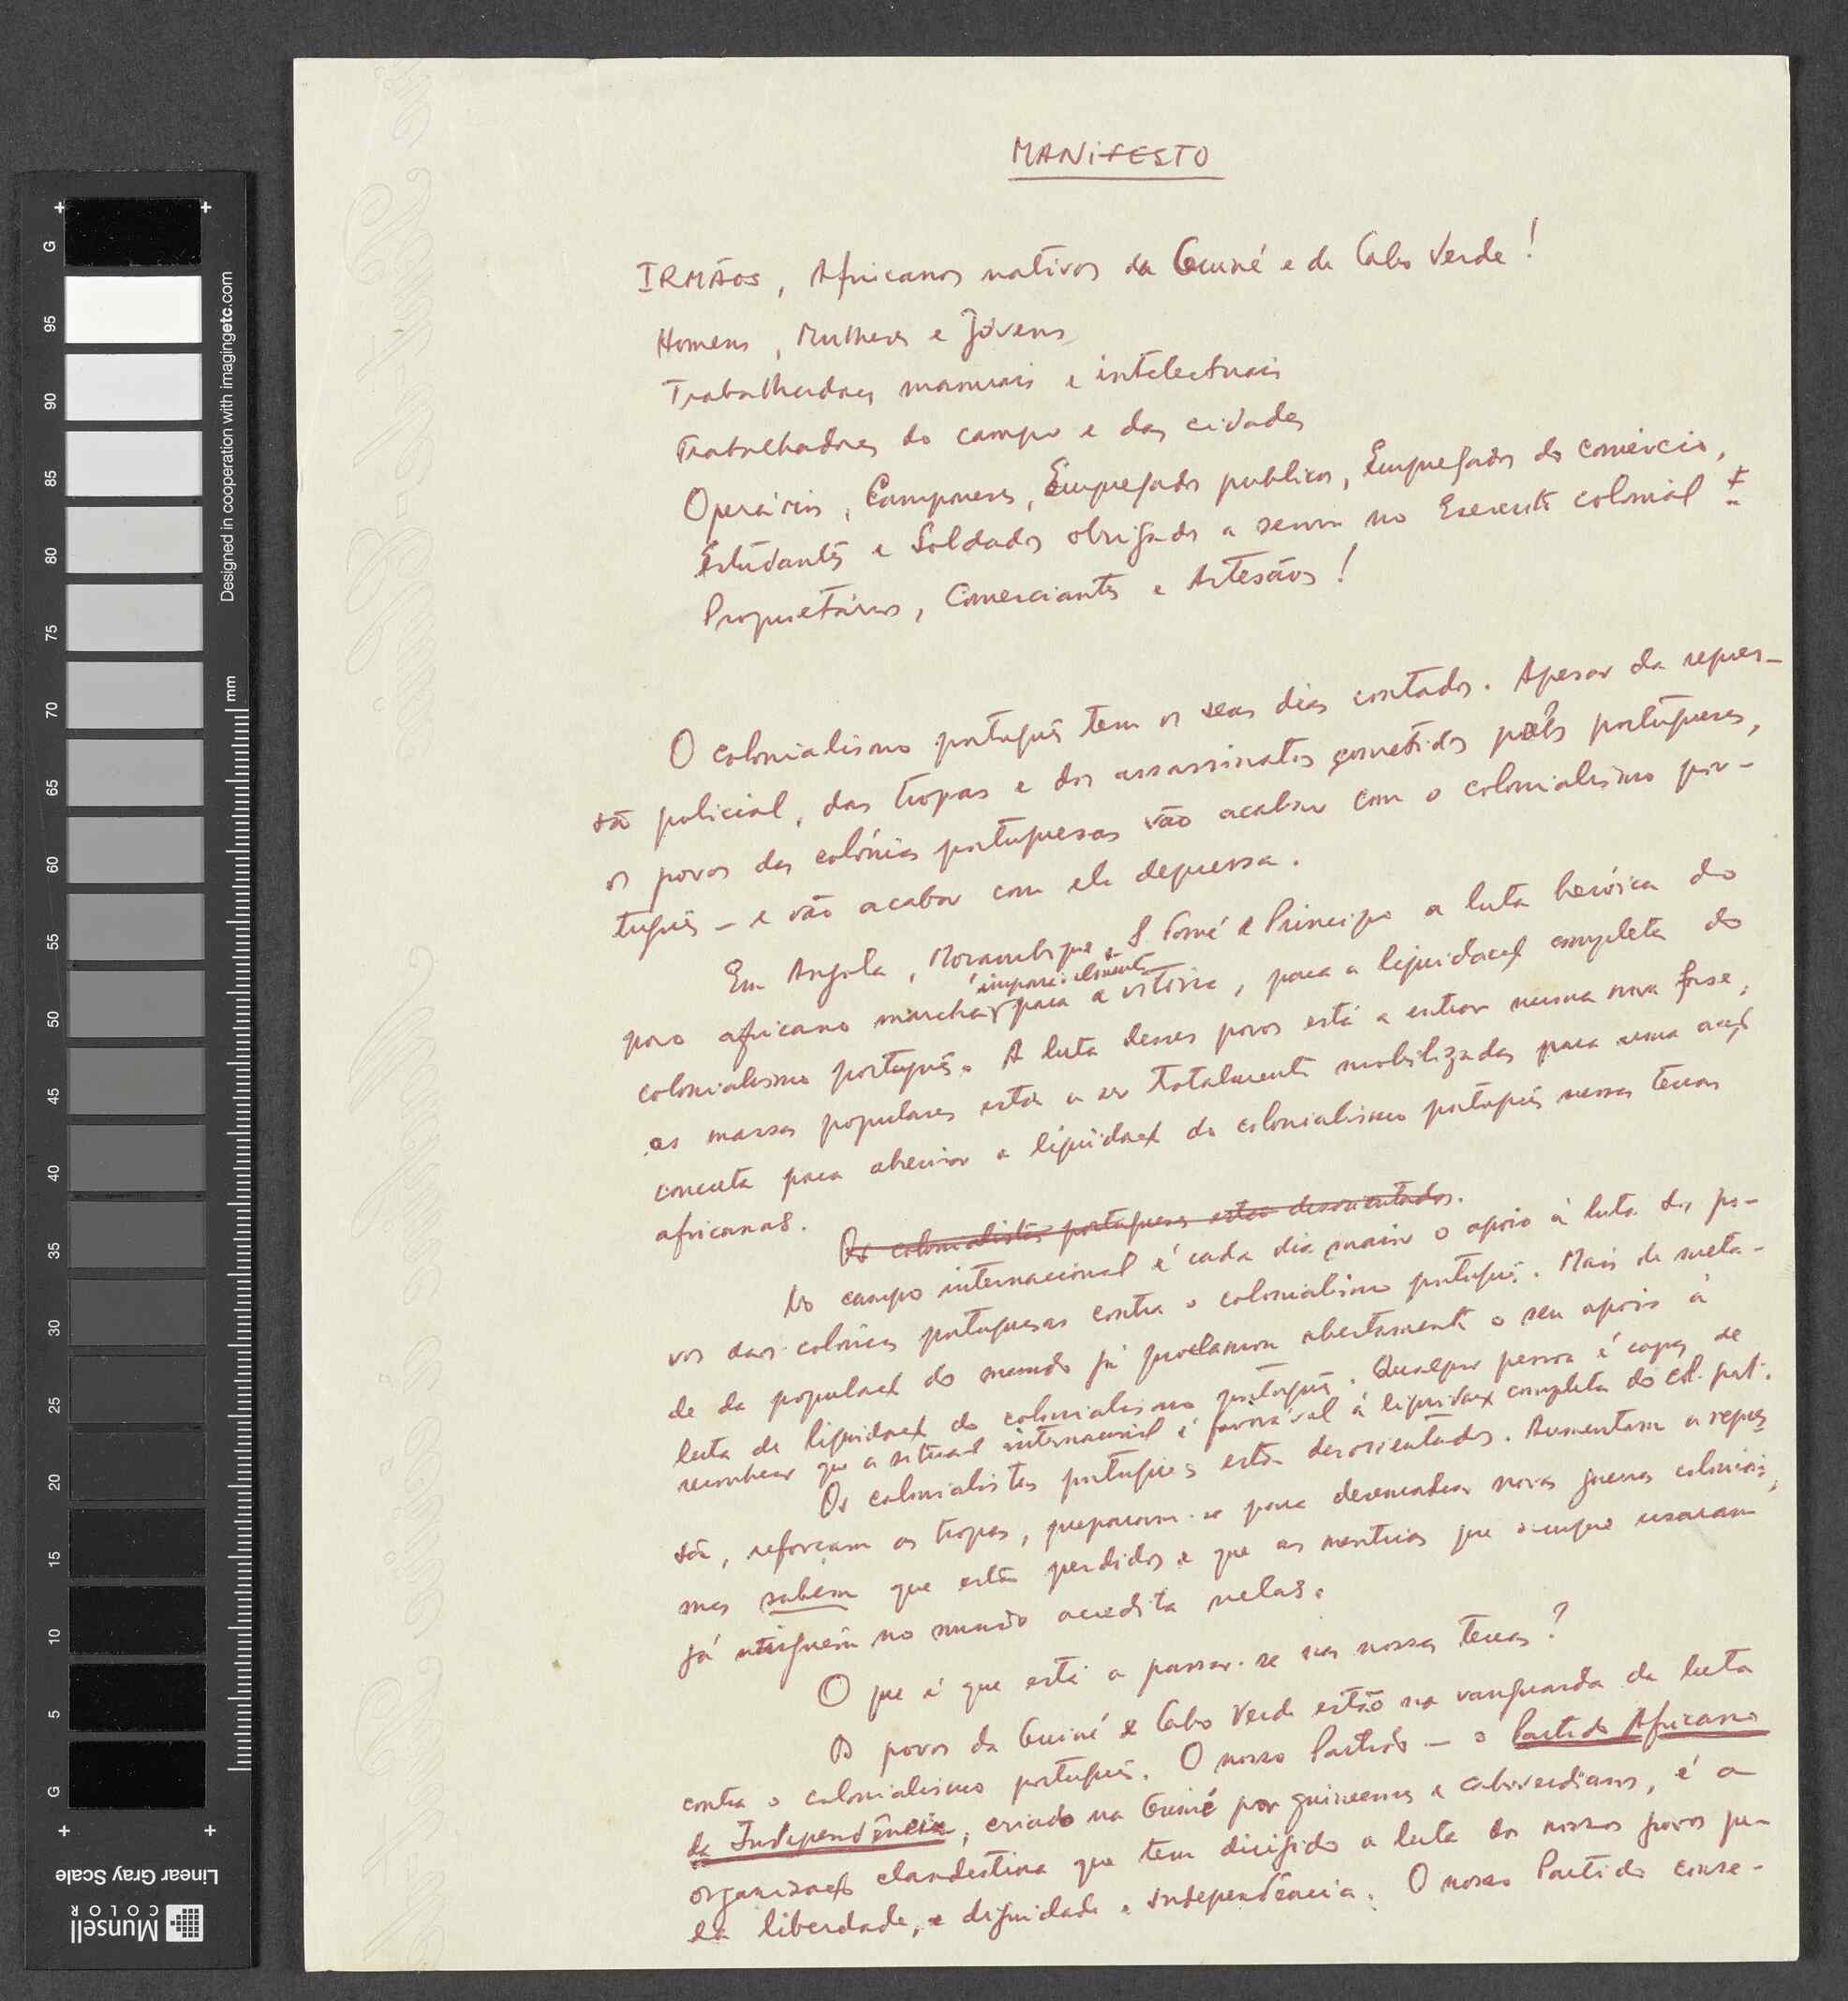 MANIFESTO
IRMÃOS, Africanos nativos da Guiné e de Cabo Verde!
Homens, Mulheres e Jóvens,
Trabalhadores manuais e intelectuais
Trabalhadores do campo e das cidades
Operários, Camponeses, Empregados publicos, Empregados do comércio,
Estudantes e Soldados obrigados a servir no Exercito colonial !
Proprietários, Comerciantes e Artesãos!
O colonialismo português tem os seus dias contados. Apesar da repres-
são policial, das tropas e dos assassinatos cometidos pelos portugueses,
os povos das colónias portuguesas vão acabar com o colonialismo por-
tuguês – e vão acabar com ele depressa.
Em Angola, Mozambique e S. Tomé e Principe a luta heróica do
povo africano marcha para a vitória, para a liquidação completa do
colonialismo português. A luta desses povos está a entrar numa nova fase,
as massas populares estão a ser totalmente mobilizadas para uma acção
concreta para abreviar a liquidação do colonialismo português nessas terras
africanas.
Os colonialistas portugueses estão desorientados.
No campo internacional é cada dia maior o apoio à luta dos po-
vos das colónias portuguesas contra o colonialismo português. Mais de meta-
de da população do mundo já proclamou abertamente o seu apoio à
luta de liquidação do colonialismo português. Qualquer pessoa é capaz de
reconhecer que a situação internacional é favorável à liquidação completa do col. port.
Os colonialistas portugueses estão desorientados. Aumentam a repres
são, reforçam as tropas, preparam-se para desencadear novas guerras coloniais,
mas sabem que estão perdidos e que as mentiras que sempre usaram
já ninguém no mundo acredita nelas.
O que é que está a passar-se nas nossas terras?
Os povos da Guiné e Cabo Verde estão na vanguarda da luta
contra o colonialismo português. O nosso Partido – o Partido Africano
da Independência, criado na Guiné por guineenses e caboverdianos, é a
organização clandestina que tem dirigido a luta dos nossos povos pe-
la liberdade, e dignidade e independência. O nosso Partido conse-
Designed in cooperation with imagingetc.com
mm
G
95
90
85
80
75
70
65
60
55
50
45
40
35
30
25
20
15
10
5
G
Linear Gray Scale
Munsell
COLOR